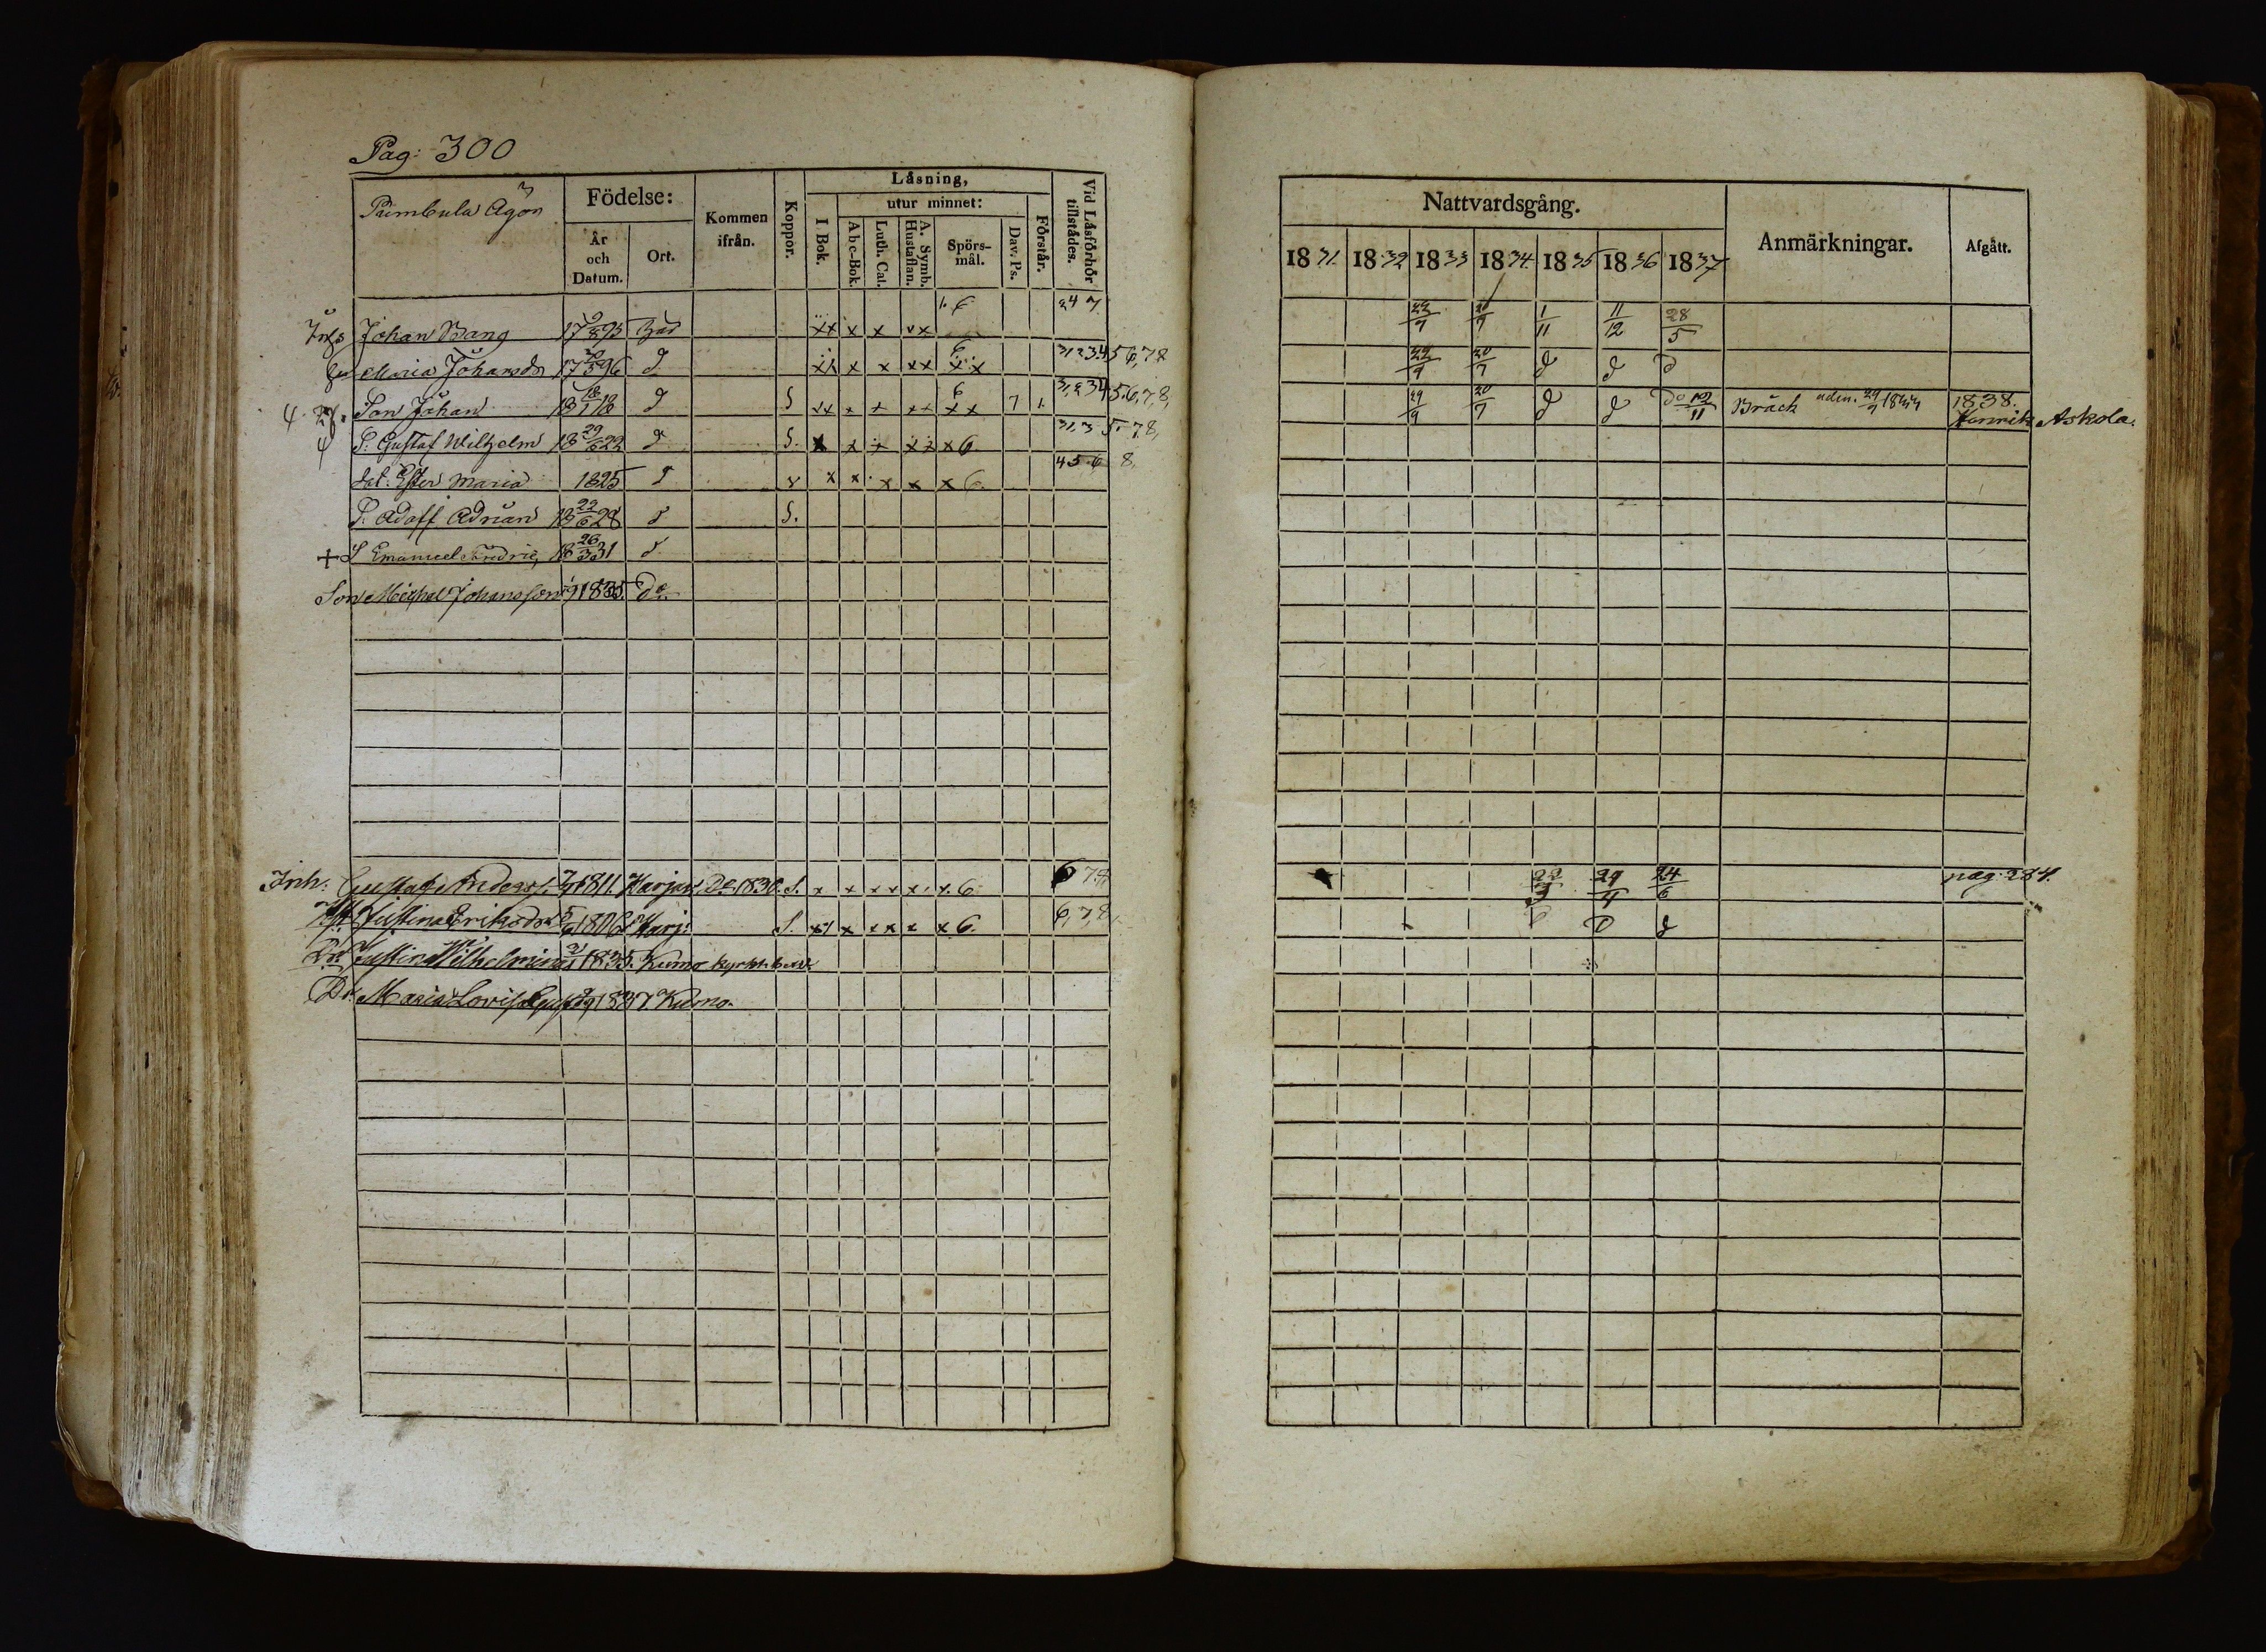 Pag: 300
Pumbula Ägor
Födelse:
År och Datum.
Ort.
Kommen ifrån.
Koppor.
Läsning,
utur minnet:
I. Bok.
Abc-Bok.
Luth. Cat.
A. Symb. Hustaflan.
Spörsmål.
Dav. Ps.
Förstår.
Vid Läsförhör tillstädes.
Inh Johan Bang 17 95 xx x x xx 1. 6 24 7
Hu Maria Johansdr 17 96 d x x xx x x 31 2 3 4 5 6, 7, 8
Son Johan 18 18/1 18 d S xx x x xx x x 6 7 1. 31, 2 3 4 5. 6, 7, 8,
S. Gustaf Wilhelm 18 29/6 22 d S. x x x x x x 6 31, 3 5. 7, 8,
dot. Ester Maria 1825 d x x x x x x 6. 4 5. 6 8,
S. Adolf Adrian 18 22/6 28 d S.
+ S Emanuel Fredric, 18 26/3 31 d
Son Michael Johansson 1835. Do.
Inh. Gustaf Anders. 1811. Harjav. Do 1836. S. x x x x x. x. 6 6 7, 8,
Justina Eriksdr 1806 Harj. S. x x x x x x 6. 6, 7, 8,
Dr Justina Wilhelmina 1835. Kumo kyrkt. bew.
Dr. Maria Lovisa Gustdr 1837. Kumo.
Nattvardsgång.
Anmärkningar.
Afgått.
1831. 1832 1833 1834. 1835 1836 1837
29/9 20/7 1/11 11/12 28/5
29/9 20/7 d d d
29/9 20/7 d d do 12/11 Bräck adm. 29/9 1833 1838. Henrik Askola.
29/4 24/6 pag: 284.
d D d